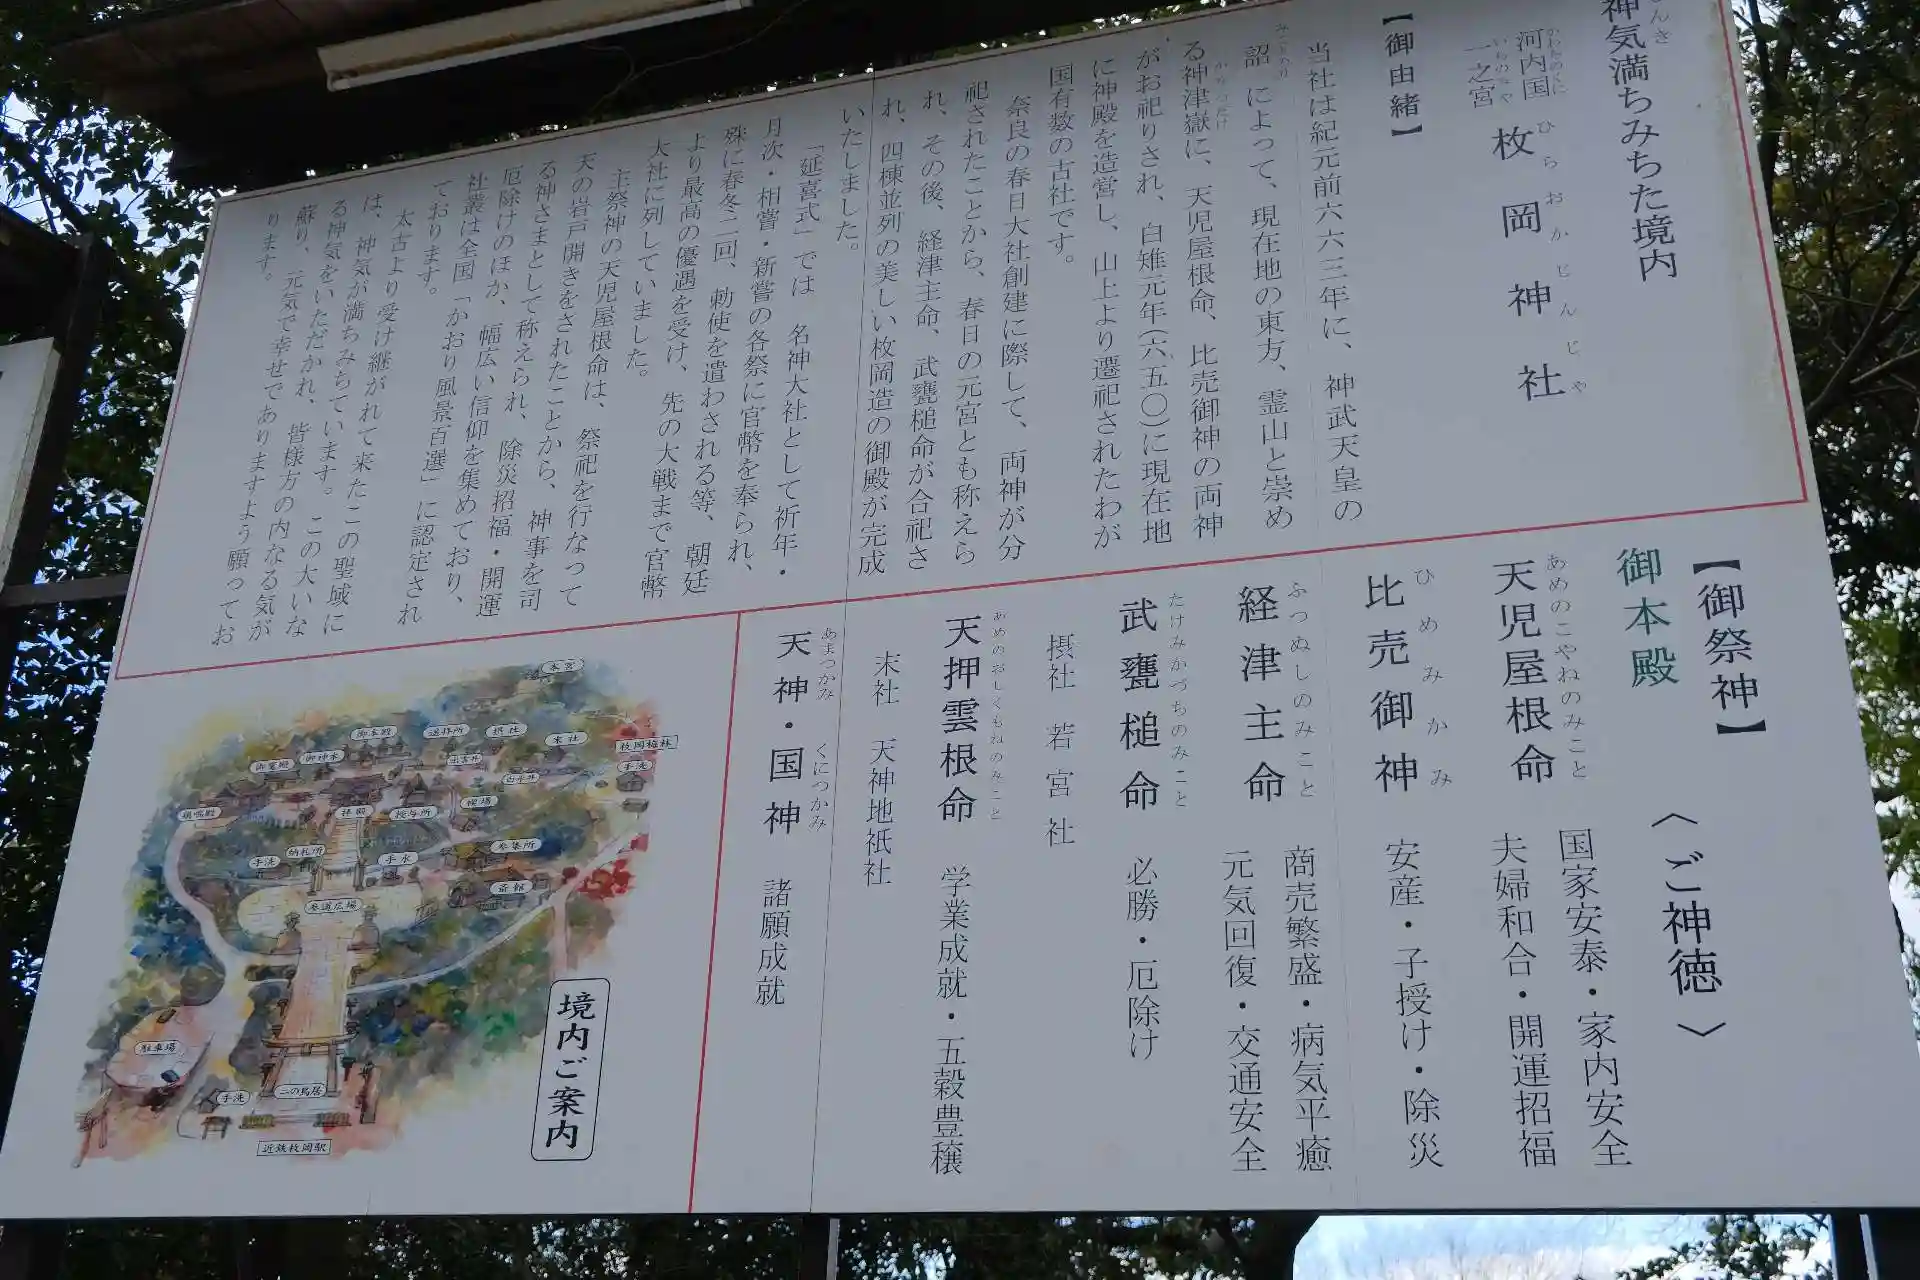 神気満ちみちた境内
河内国
一之宮
枚岡神社
ひらおかじんじゃ
【御由緒】
当社は紀元前六六三年に、神武天皇の
詔によって、現在地の東方、霊山と崇め
る神津嶽に、天児屋根命、比売御神の両神
がお祀りされ、自雉元年(六五〇)に現在地
に神殿を造営し、山上より遷祀されたわが
国有数の古社です。
奈良の春日大社創建に際して、両神が分
祀されたことから、春日の元宮とも称えら
れ、その後、経津主命、武甕槌命が合祀さ
れ、四棟並列の美しい枚岡造の御殿が完成
いたしました。
「延喜式」では 名神大社として祈年・
月次・相嘗・新嘗の各祭に官幣を奉られ、
殊に春冬二回、勅使を遣わされる等、朝廷
より最高の優遇を受け、先の大戦まで官幣
大社に列していました。
主祭神の天児屋根命は、祭祀を行なって
天の岩戸開きをされたことから、神事を司
る神さまとして称えられ、除災招福・開運
厄除けのほか、幅広い信仰を集めており、
社叢は全国「かおり風景百選」に認定され
ております。
太古より受け継がれて来たこの聖域に
は、神気が満ちみちています。この大いな
る神気をいただかれ、皆様方の内なる気が
蘇り、元気で幸せでありますよう願ってお
ります。
【御祭神】 〈ご神徳〉
御本殿
あめのこやねのみこと
天児屋根命 国家安泰・家内安全
夫婦和合・開運招福
ひめみかみ
比売御神 安産・子授け・除災
ふつぬしのみこと
経津主命 商売繁盛・病気平癒
元気回復・交通安全
たけみかづちのみこと
武甕槌命 必勝・厄除け
摂社 若宮社
あめのおしくもねのみこと
天押雲根命 学業成就・五穀豊穣
末社 天神地祇社
あまつかみ くにつかみ
天神・国神 諸願成就
境内ご案内
本宮
御本殿
遥拝所
摂社
末社
枚岡梅林
手洗
御神木
白水井
拝殿
授与所
手洗
納札所
手水
参集所
斎館
参道広場
駐車場
手洗
二の鳥居
近鉄枚岡駅